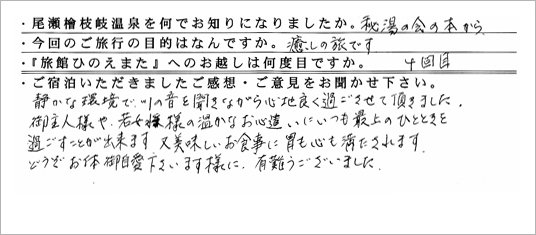 ・尾瀬檜枝岐温泉を何でお知りになりましたか。秘湯の会の本から
・今回のご旅行の目的はなんですか。癒しの旅です
・『旅館ひのえまた』へのお越しは何度目ですか。 4回目
・ご宿泊いただきましたご感想・ご意見をお聞かせ下さい。
静かな環境で、川の音を聞きながら心地良く過ごさせて頂きました。
御主人様や、若女将様の温かなお心遣いにいつも最上のひとときを
過ごすことが出来ます。又美味しいお食事に胃も心も満たされます。
どうぞお体御自愛下さいます様に。有難うございました。